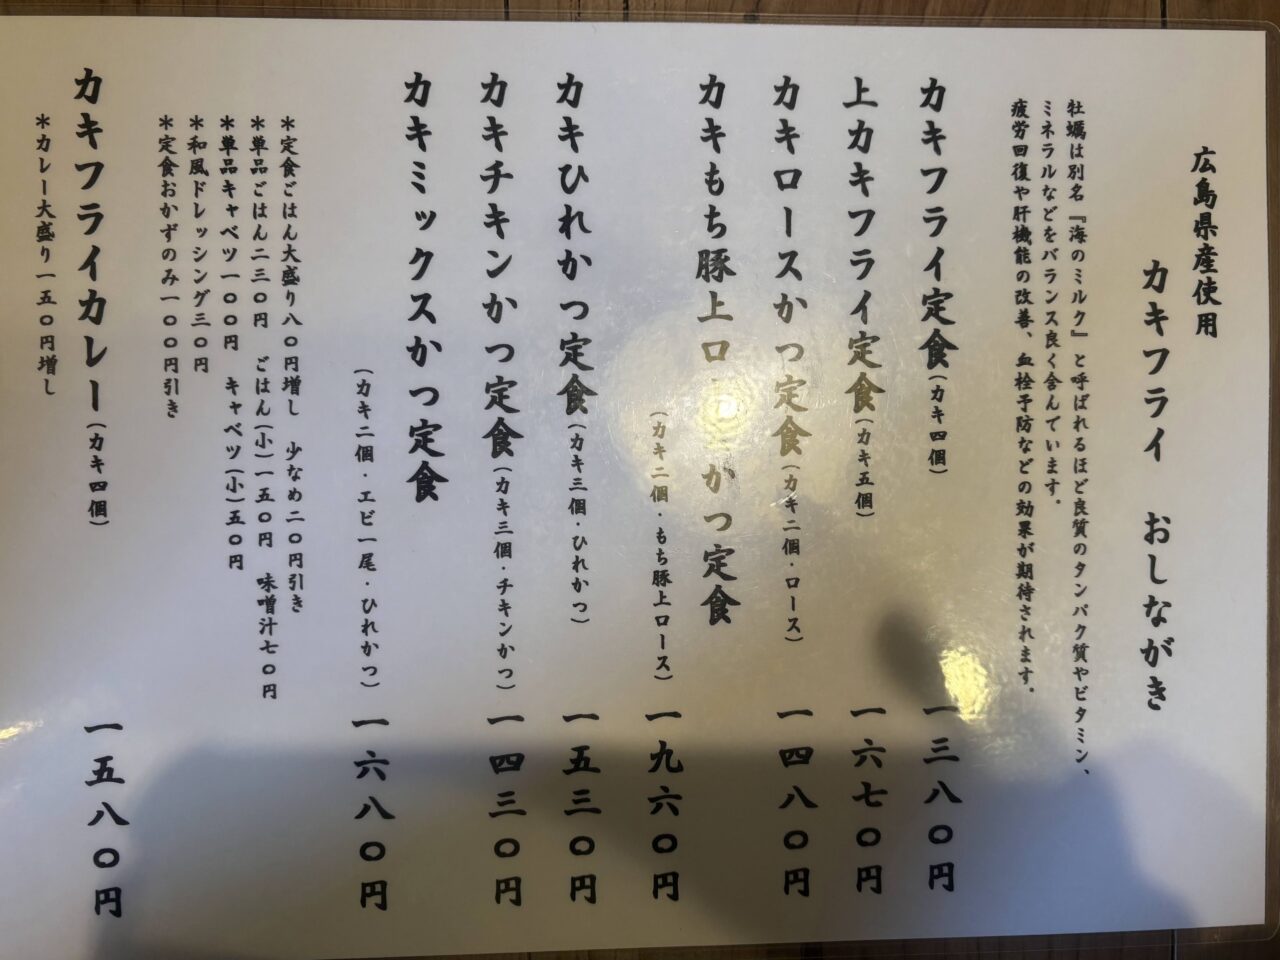 広島県産使用
カキフライ　おしながき
牡蠣は別名『海のミルク』と呼ばれるほど良質のタンパク質やビタミン、
ミネラルなどをバランス良く含んでいます。
疲労回復や肝機能の改善、血栓予防などの効果が期待されます。
カキフライ定食(カキ四個)　一三八〇円
上カキフライ定食(カキ五個)　一六七〇円
カキロースかつ定食(カキ二個・ロース)　一四八〇円
カキもち豚上ロースかつ定食
(カキ二個・もち豚上ロース)　一九六〇円
カキひれかつ定食(カキ三個・ひれかつ)　一五三〇円
カキチキンかつ定食(カキ三個・チキンかつ)　一四三〇円
カキミックスかつ定食
(カキ二個・エビ一尾・ひれかつ)　一六八〇円
＊定食ごはん大盛り八〇円増し　少なめ二〇円引き
＊単品ごはん二三〇円　ごはん(小)一五〇円　味噌汁七〇円
＊単品キャベツ一〇〇円　キャベツ(小)五〇円
＊和風ドレッシング三〇円
＊定食おかずのみ一〇〇円引き
カキフライカレー(カキ四個)　一五八〇円
＊カレー大盛り一五〇円増し